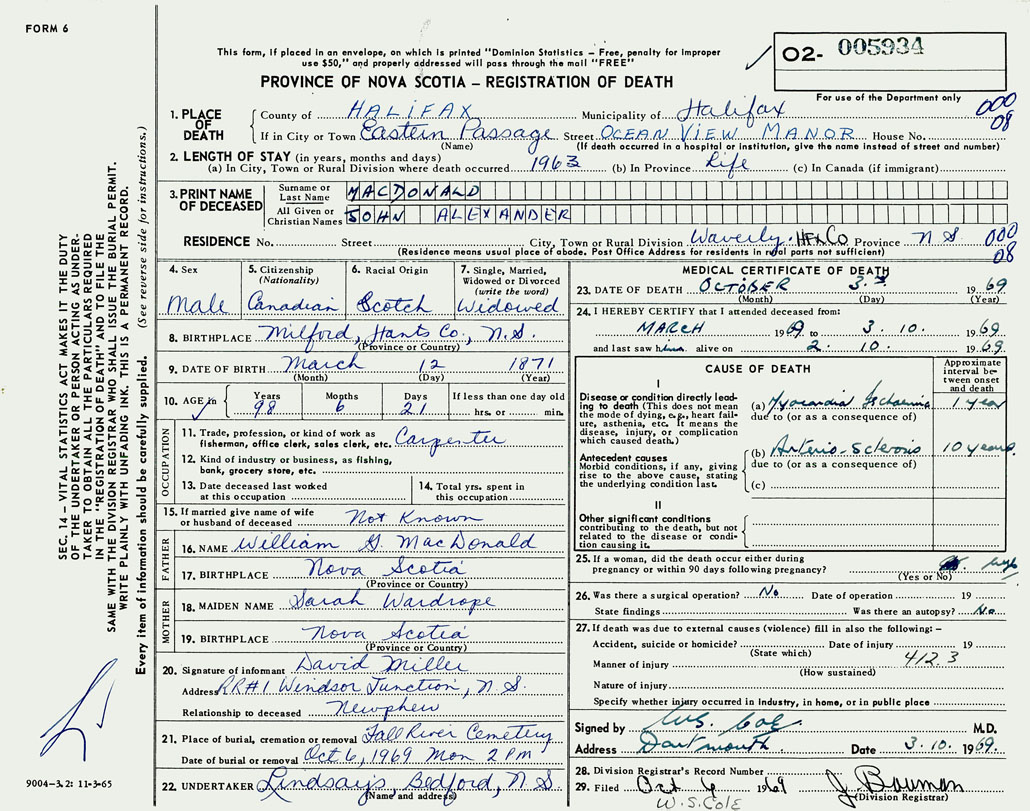 FORM 6
This form, if placed in an envelope, on which is printed "Dominion Statistics – Free, penalty for improper
use $50," and properly addressed will pass through the mail "FREE"
PROVINCE OF NOVA SCOTIA – REGISTRATION OF DEATH
O2- 005934
For use of the Department only
000
08
1. PLACE OF DEATH
County of HALIFAX Municipality of Halifax
If in City or Town Eastern Passage Street OCEAN VIEW MANOR House No.
(Name) (If death occurred in a hospital or institution, give the name instead of street and number)
2. LENGTH OF STAY (in years, months and days)
(a) In City, Town or Rural Division where death occurred 1963 (b) In Province Life (c) In Canada (if immigrant)
3. PRINT NAME OF DECEASED
Surname or Last Name MACDONALD
All Given or Christian Names JOHN ALEXANDER
RESIDENCE No. Street City, Town or Rural Division Waverly HFX Co Province N S 000
(Residence means usual place of abode. Post Office Address for residents in rural parts not sufficient) 08
4. Sex
Male
5. Citizenship
(Nationality)
Canadian
6. Racial Origin
Scotch
7. Single, Married,
Widowed or Divorced
(write the word)
Widowed
8. BIRTHPLACE Milford, Hants Co, N.S.
(Province or Country)
9. DATE OF BIRTH March 12 1871
(Month) (Day) (Year)
10. AGE in Years Months Days If less than one day old
98 6 21 hrs. or min.
OCCUPATION
11. Trade, profession, or kind of work as
fisherman, office clerk, sales clerk, etc. Carpenter
12. Kind of industry or business, as fishing,
bank, grocery store, etc.
13. Date deceased last worked
at this occupation
14. Total yrs. spent in
this occupation
15. If married give name of wife
or husband of deceased Not Known
FATHER
16. NAME William G. MacDonald
17. BIRTHPLACE Nova Scotia
(Province or Country)
MOTHER
18. MAIDEN NAME Sarah Wardrope
19. BIRTHPLACE Nova Scotia
(Province or Country)
20. Signature of informant David Miller
Address RR#1 Windsor Junction, N.S.
Relationship to deceased Newphew
21. Place of burial, cremation or removal Fall River Cemetery
Date of burial or removal Oct 6, 1969 Mon 2 PM
22. UNDERTAKER Lindsay's Bedford, N S
(Name and address)
MEDICAL CERTIFICATE OF DEATH
23. DATE OF DEATH OCTOBER 3. 1969
(Month) (Day) (Year)
24. I HEREBY CERTIFY that I attended deceased from:
MARCH 1969 to 3. 10. 1969
and last saw him alive on 2. 10. 1969
CAUSE OF DEATH
Approximate interval between onset and death
I
Disease or condition directly leading to death (This does not mean the mode of dying, e.g., heart failure, asthenia, etc. It means the disease, injury, or complication which caused death.)
(a) Myocardial Ischaemia 1 year
due to (or as a consequence of)
Antecedent causes
Morbid conditions, if any, giving rise to the above cause, stating the underlying condition last.
(b) Arterio-Sclerosis 10 years
due to (or as a consequence of)
(c)
II
Other significant conditions
contributing to the death, but not related to the disease or condition causing it.
25. If a woman, did the death occur either during
pregnancy or within 90 days following pregnancy?
(Yes or No)
26. Was there a surgical operation? No Date of operation 19
State findings Was there an autopsy? No
27. If death was due to external causes (violence) fill in also the following: –
Accident, suicide or homicide? Date of injury 19
(State which) 412 3
Manner of injury
(How sustained)
Nature of injury
Specify whether injury occurred in industry, in home, or in public place
Signed by W.S. Cole M.D.
Address Dartmouth Date 3. 10. 1969.
28. Division Registrar's Record Number
29. Filed Oct 6 1969 J. Bauman
(Division Registrar)
W.S. COLE
SEC. 14 – VITAL STATISTICS ACT MAKES IT THE DUTY
OF THE UNDERTAKER OR PERSON ACTING AS UNDER-
TAKER TO OBTAIN ALL THE PARTICULARS REQUIRED
IN THE "REGISTRATION OF DEATH" AND TO FILE THE
SAME WITH THE DIVISION REGISTRAR WHO SHALL ISSUE THE BURIAL PERMIT.
WRITE PLAINLY WITH UNFADING INK. THIS IS A PERMANENT RECORD.
Every item of information should be carefully supplied. (See reverse side for instructions.)
9004-3.2: 11-3-65